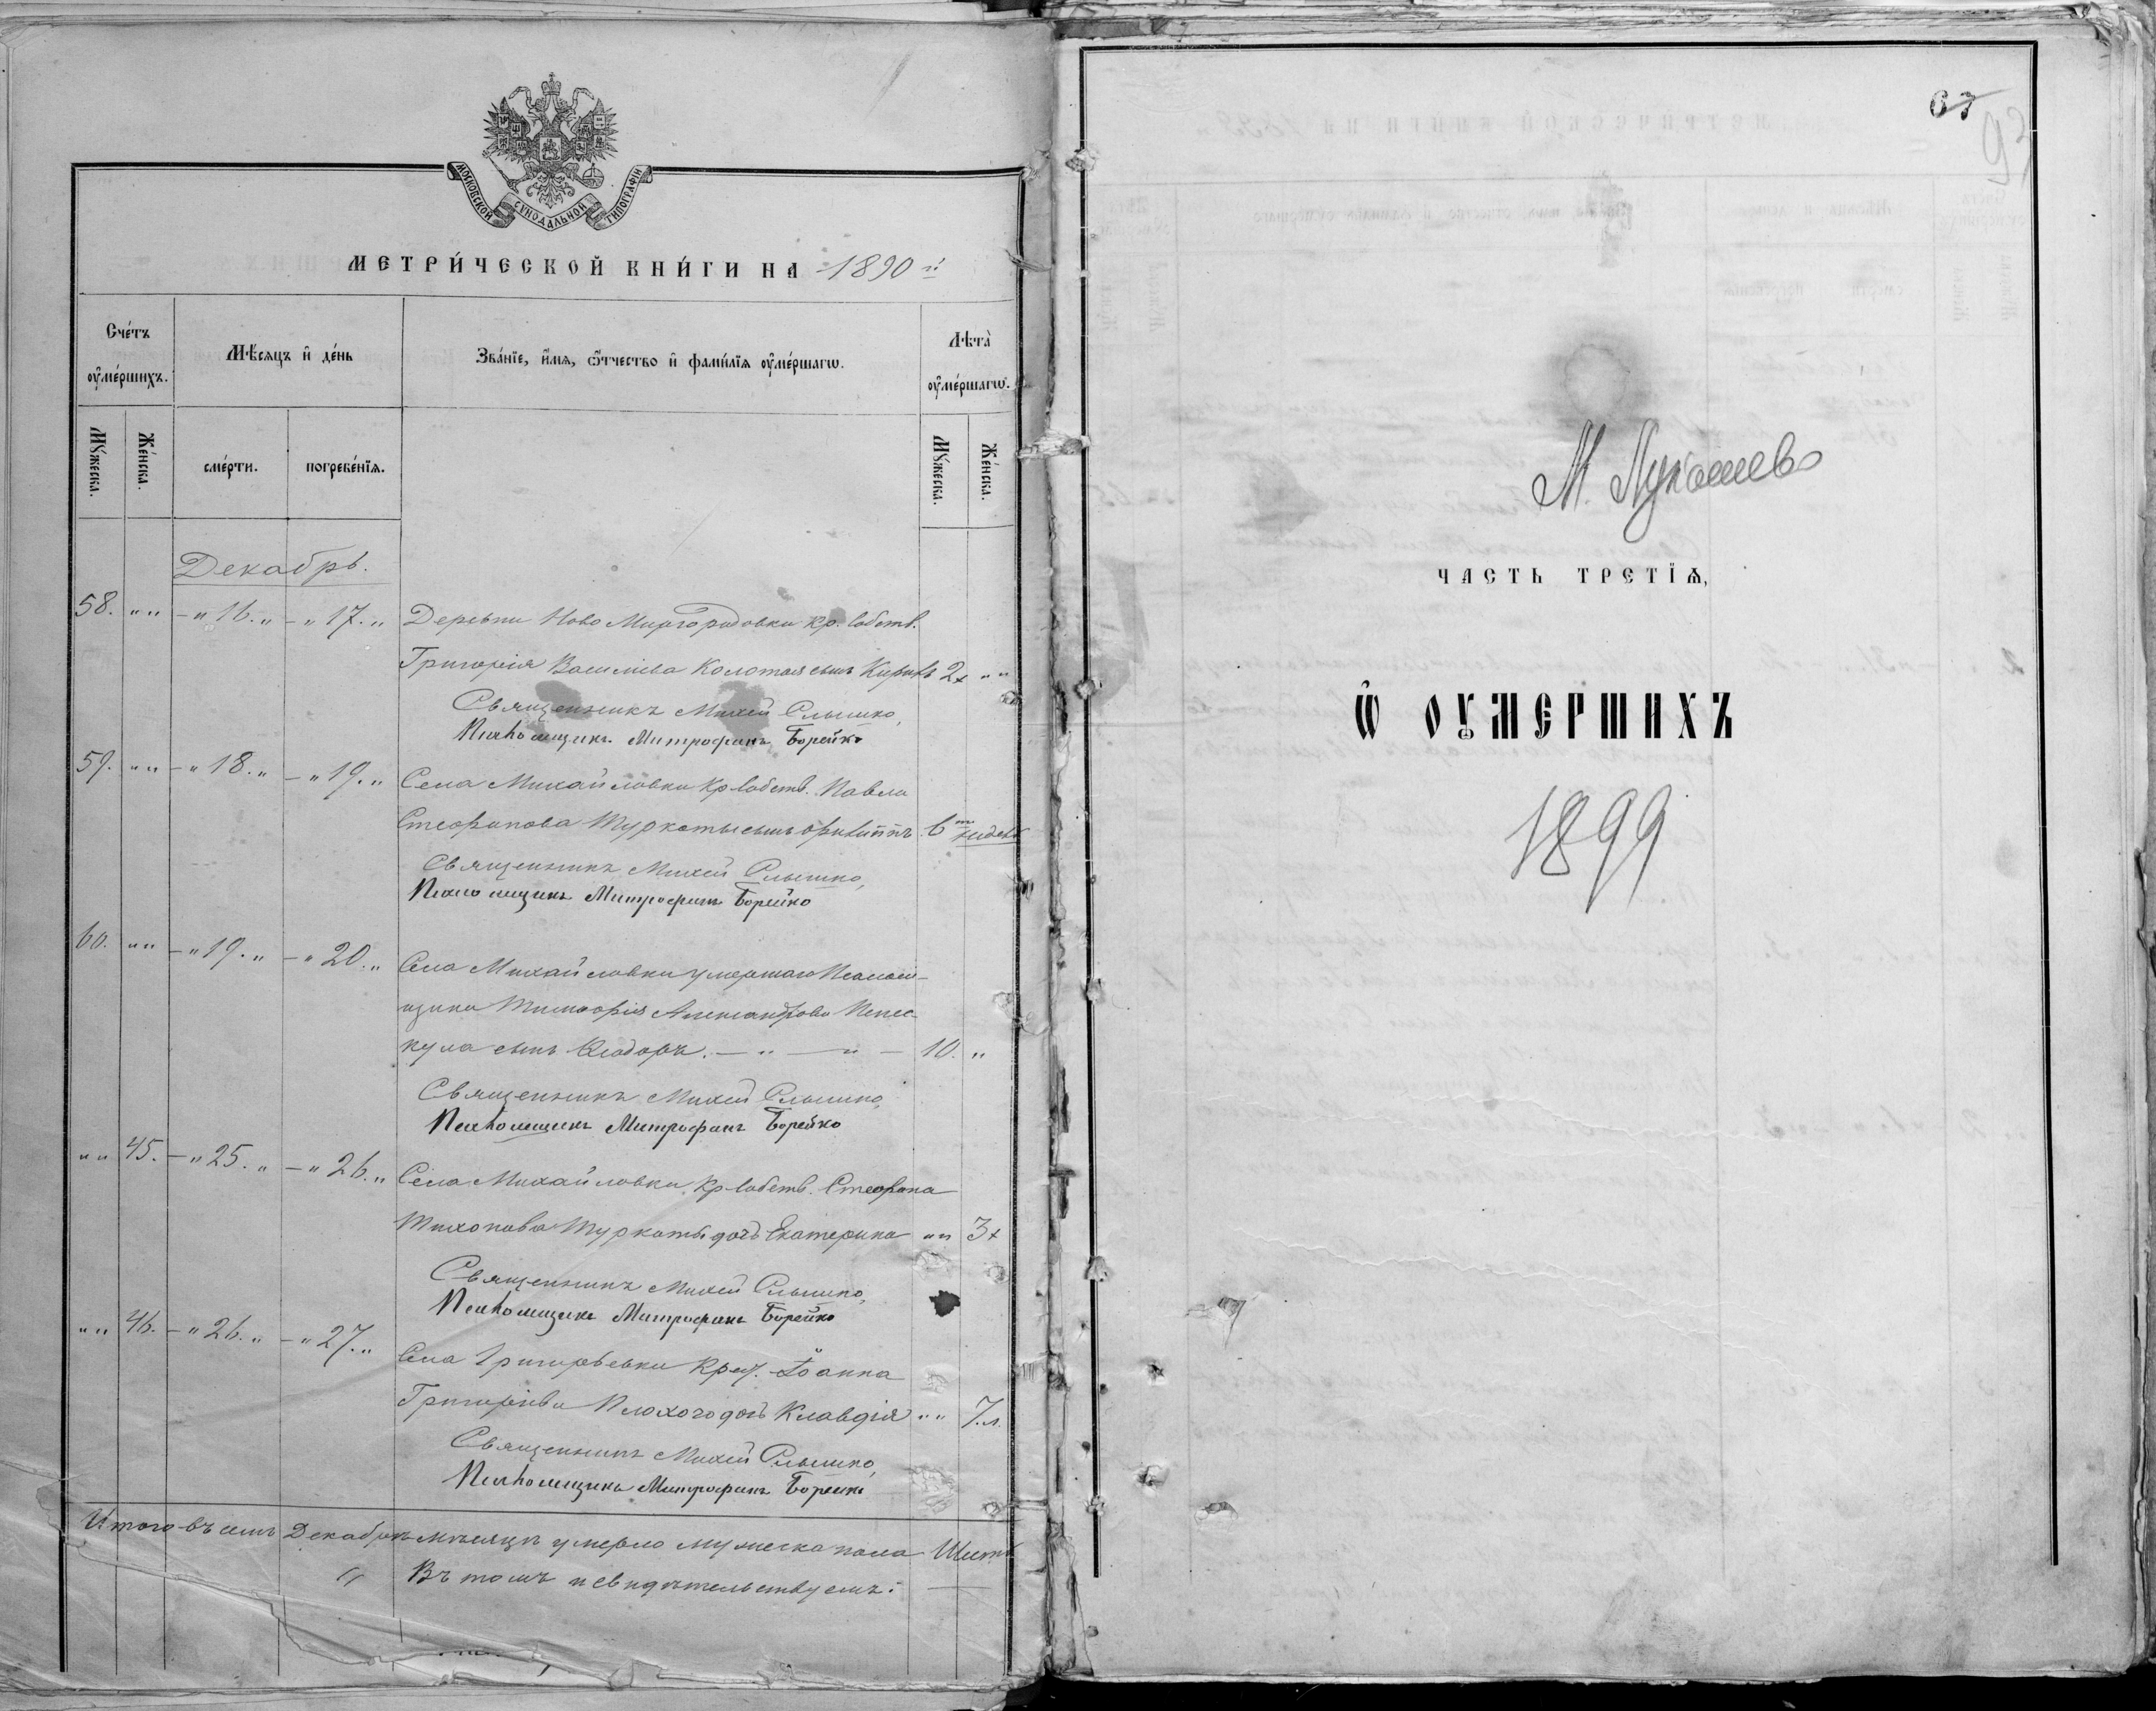 МОСКОВСКОЙ СУНОДАЛЬНОЙ ТИПОГРАФІИ
МЕТРИ́ЧЕСКОЙ КНИ́ГИ НА 1890 й
Сче́тъ оумє́ршихъ.
Мѣ́сяцъ и де́нь
Зва́нїе, и́мя, ѻ́тчество и фами́лїя оумє́ршагѡ.
Лѣта̀ оумє́ршагѡ.
Му́жеска.
Же́нска.
сме́рти.
погребе́нїя.
Му́жеска.
Же́нска.
Декабрь.
58. „ „ – „ 16. „ – „ 17. „ Деревни Ново Миргородовки кр. собств.
Григорія Василіева Колотая сынъ Кирилъ 2 „ „
Священникъ Михей Слышко,
Псаломщикъ Митрофанъ Борейко
59. „ „ – „ 18. „ – „ 19. „ Села Михайловки кр собств. Павла
Стефанова Туркоты сынъ Филиппъ 6 недѣл
Священникъ Михей Слышко,
Псаломщикъ Митрофанъ Борейко
60. „ „ – „ 19. „ – „ 20. „ Села Михайловки умершаго Псалом-
щика Тимофія Александрова Пепес-
кула сынъ Ѳеодоръ. 10. „
Священникъ Михей Слышко,
Псаломщикъ Митрофанъ Борейко
„ „ 45. – „ 25. „ – „ 26. „ Села Михайловки кр собств. Стефана
Тихонова Туркоты дочь Екатерина „ „ 3
Священникъ Михей Слышко,
Псаломщикъ Митрофанъ Борейко
„ „ 46. – „ 26. „ – „ 27. „ Села Григорьевки Крест. Іоанна
Григоріева Плохого дочь Клавдія „ „ 7.л.
Священникъ Михей Слышко,
Псаломщикъ Митрофанъ Борейко
Итого въ семъ Декабрѣ мѣсяцѣ умерло мужеска пола
Въ томъ и свидѣтельствуемъ:
63
М. Лукашево
ЧАСТЬ ТРЕТІѦ,
Ѡ ОУМЕРШИХЪ
1899